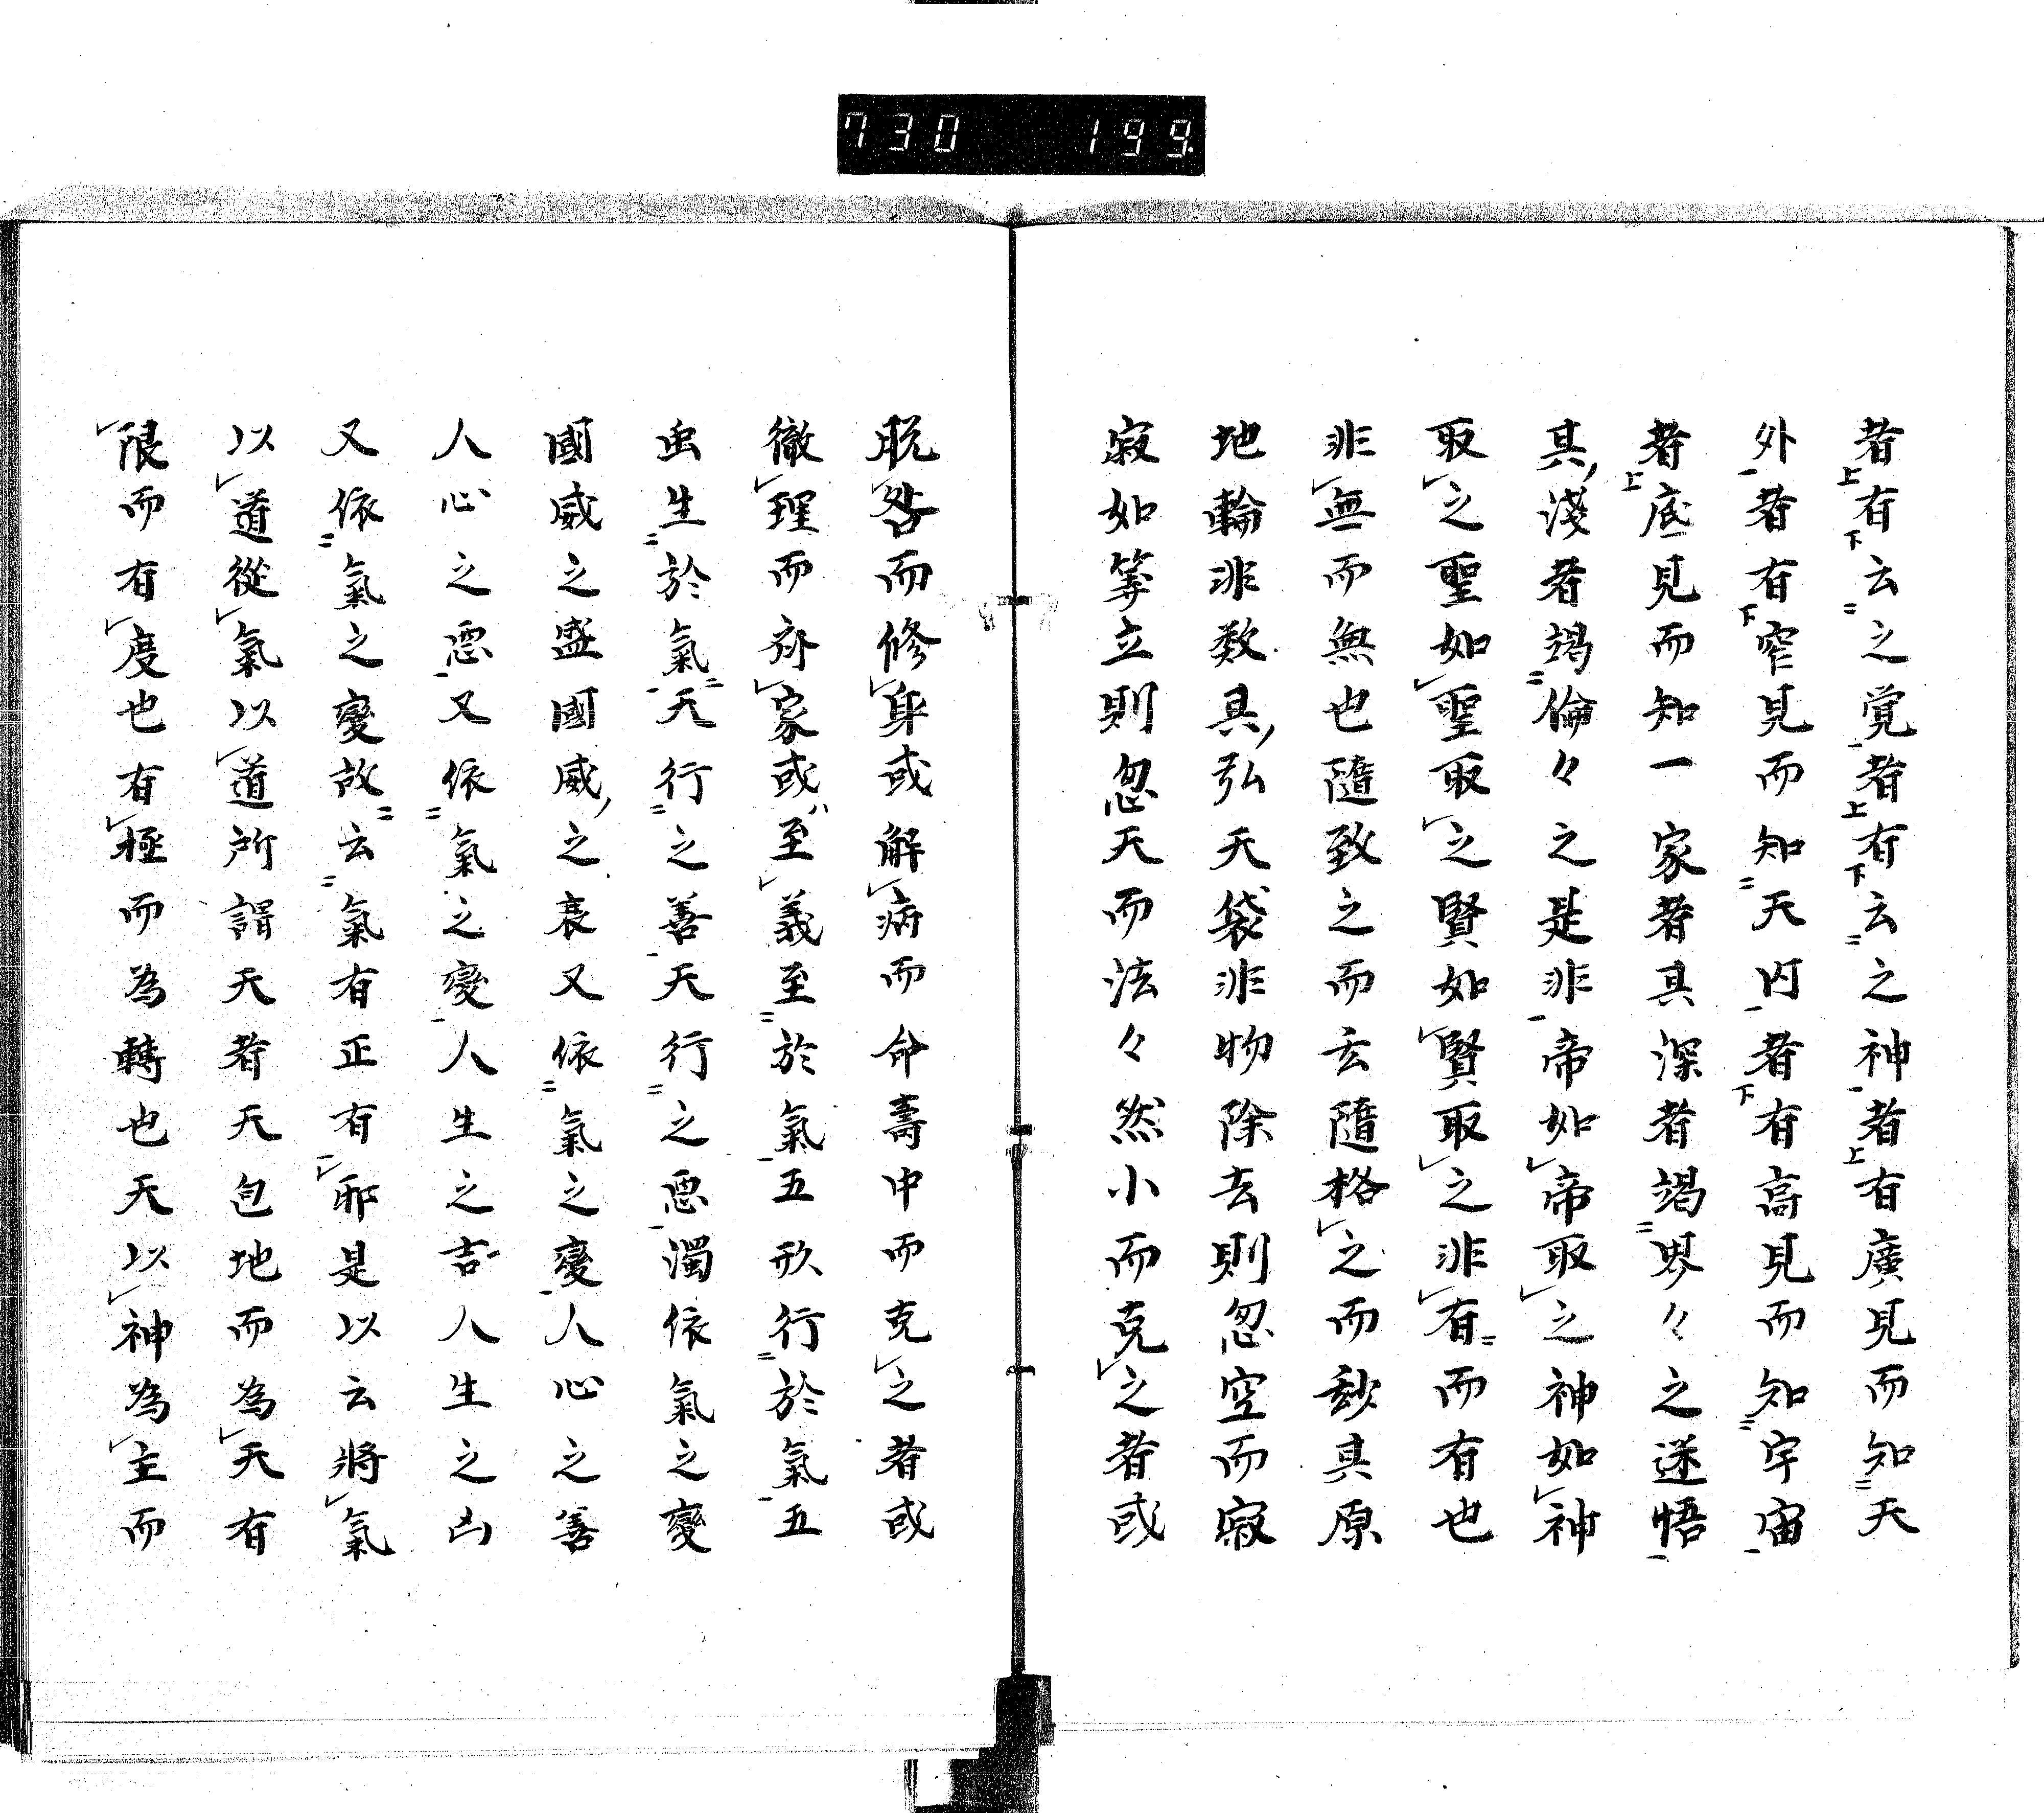 730 199
者有云之覚者有云之神者有廣見而知天
外者有窄見而知天内者有高見而知宇宙
者底見而知一家者其深者竭界々之迷悟
其淺者竭倫々之是非帝如帝取之神如神
取之聖如聖取之賢如賢取之非有而有也
非無而無也隨致之而去隨格之而其原
地輪非数具弘天袋非物除去則忽空而寂
寂如等立則忽天而法々然小而克之者或
脱咎而修身或解病而命壽中而克之者或
徹理而齊家或至義至於氣五形行於氣五
虫生於氣天行之善天行之惡濁依氣之變
國威之盛國威之衰又依氣之變人心之善
人心之惡又依氣之變人生之吉人生之凶
又依氣之變故云氣有正有邪是以云將氣
以道從氣以道所謂天者天包地而為天有
限而有度也有極而為轉也天以神為主而